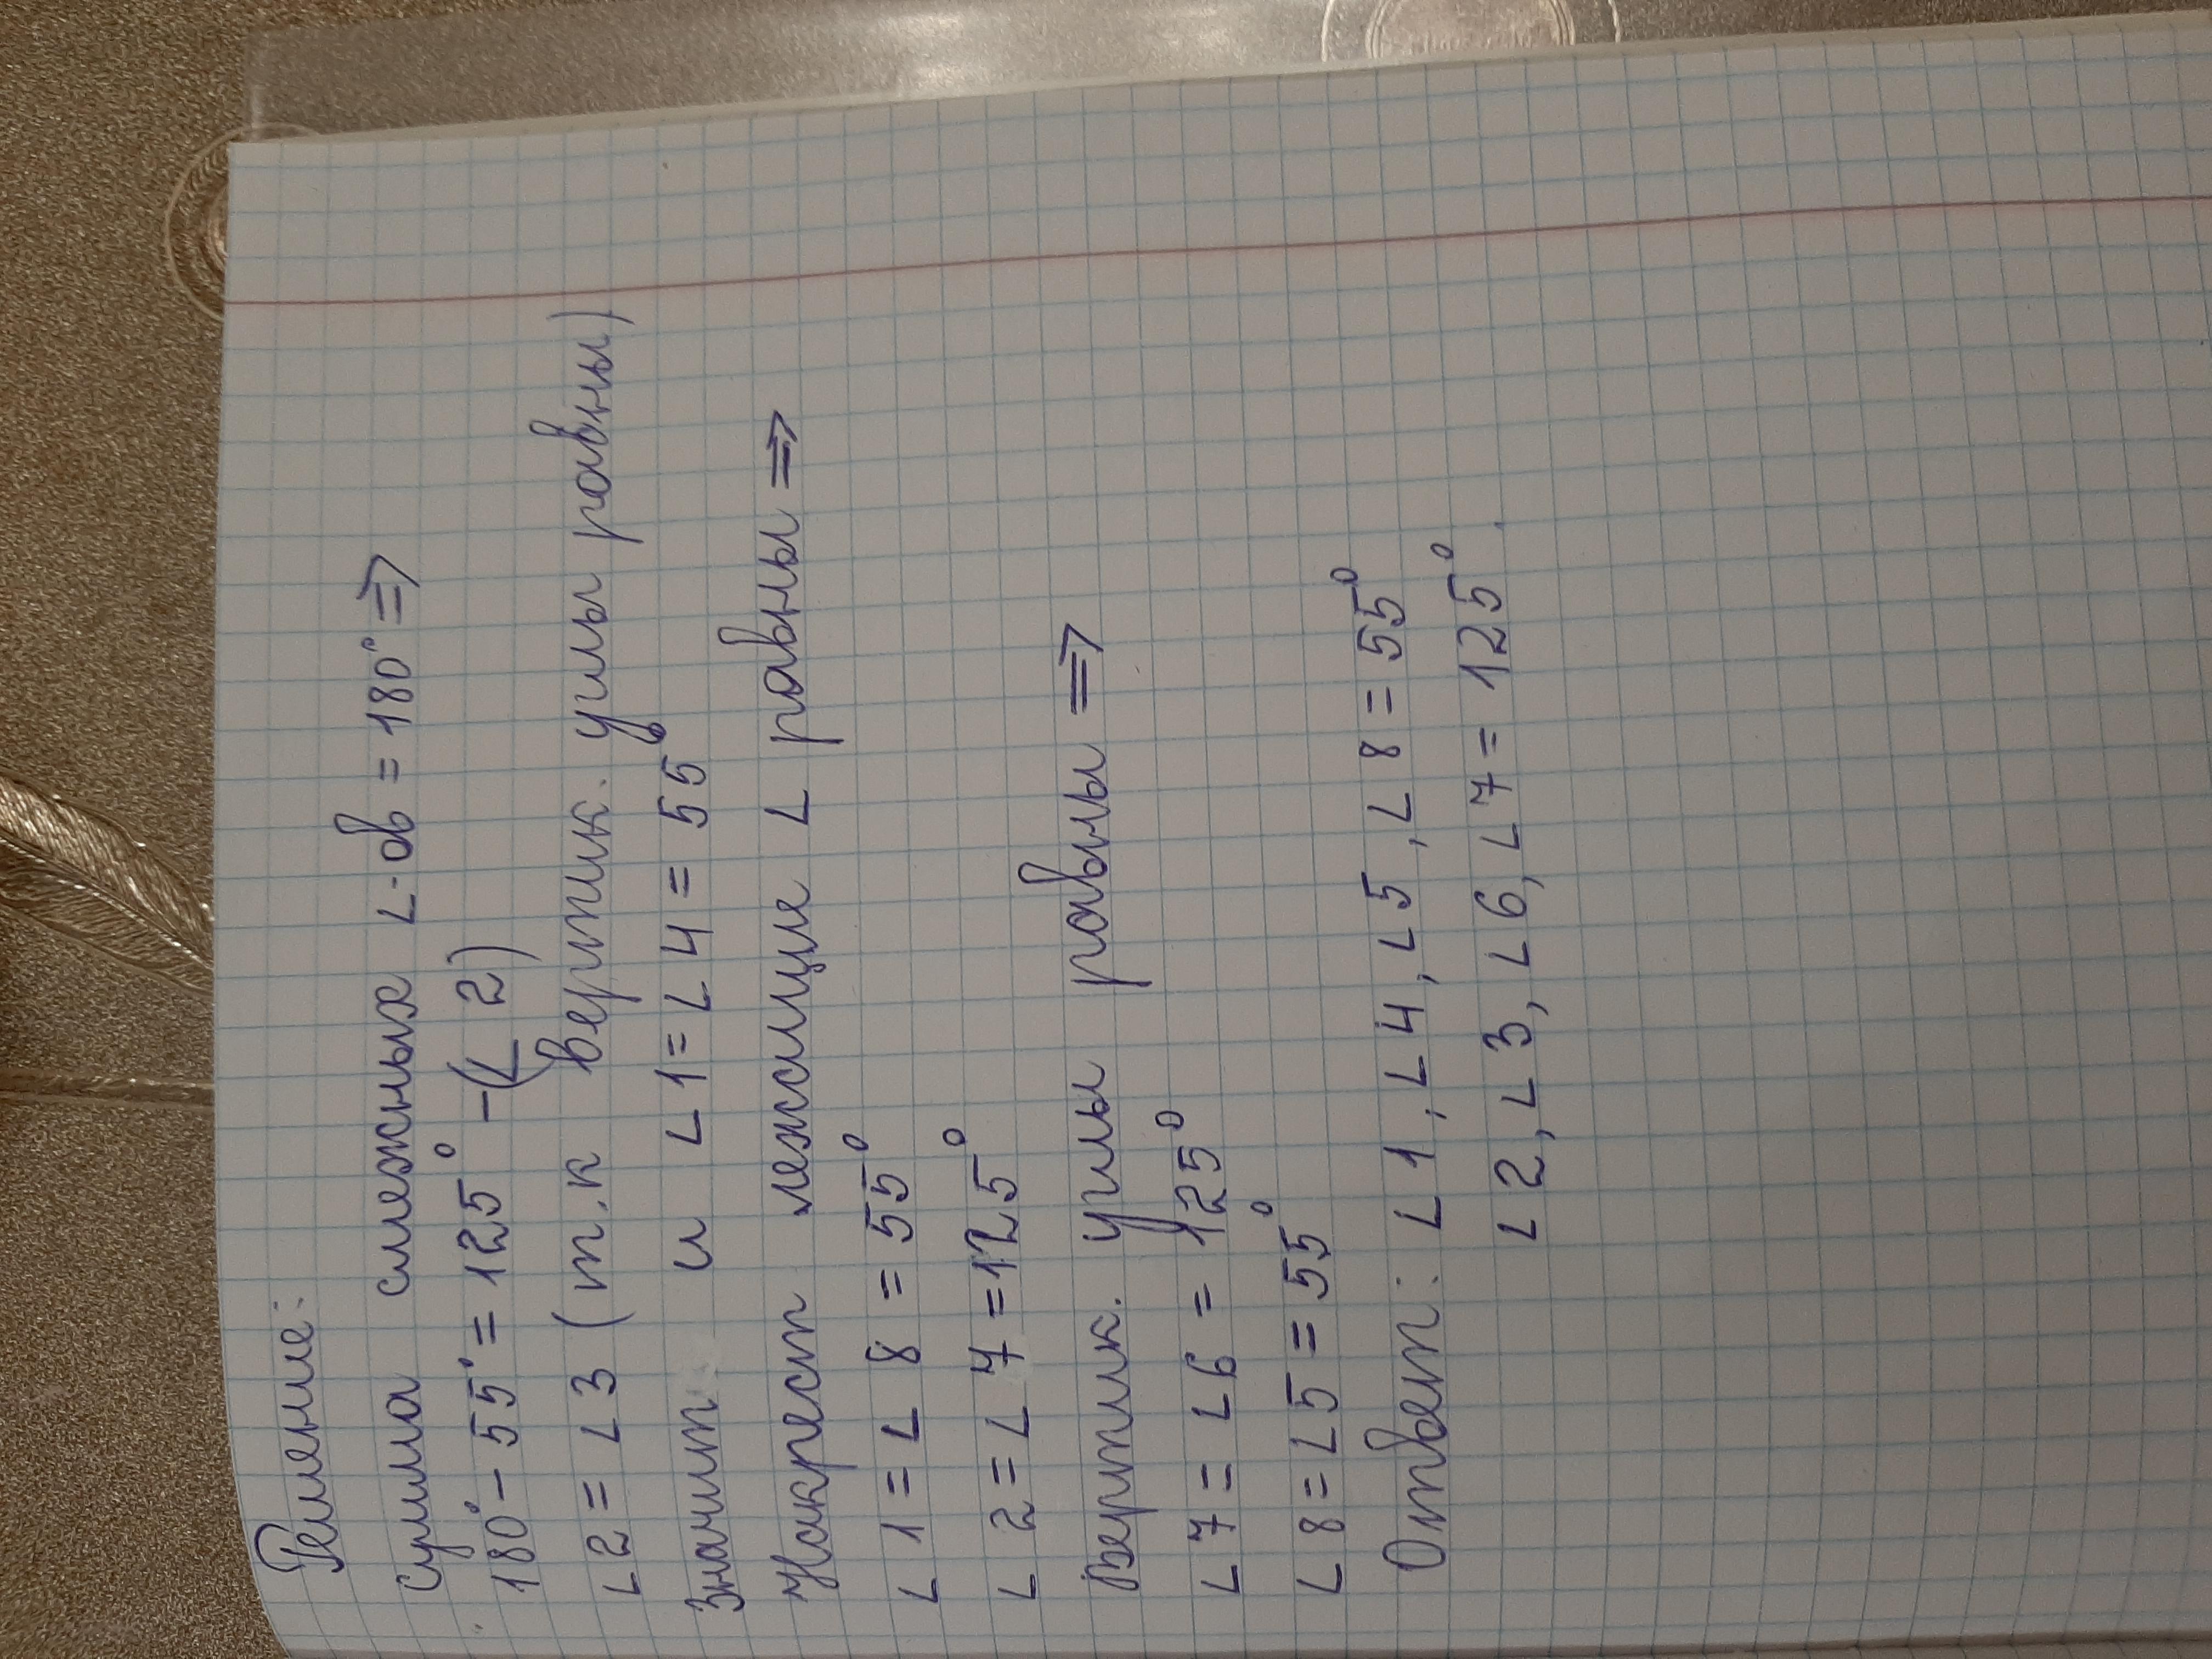 Решение:
Сумма смежных ∠-ов = 180° =>
180° - 55° = 125° - (∠ 2)
∠2 = ∠3 (т.к вертик. углы равны)
Значит и ∠1 = ∠4 = 55°
Накрест лежащие ∠ равны =>
∠1 = ∠8 = 55°
∠2 = ∠7 = 125°
Вертик. углы равны =>
∠7 = ∠6 = 125°
∠8 = ∠5 = 55°
Ответ: ∠1, ∠4, ∠5, ∠8 = 55°
∠2, ∠3, ∠6, ∠7 = 125°.